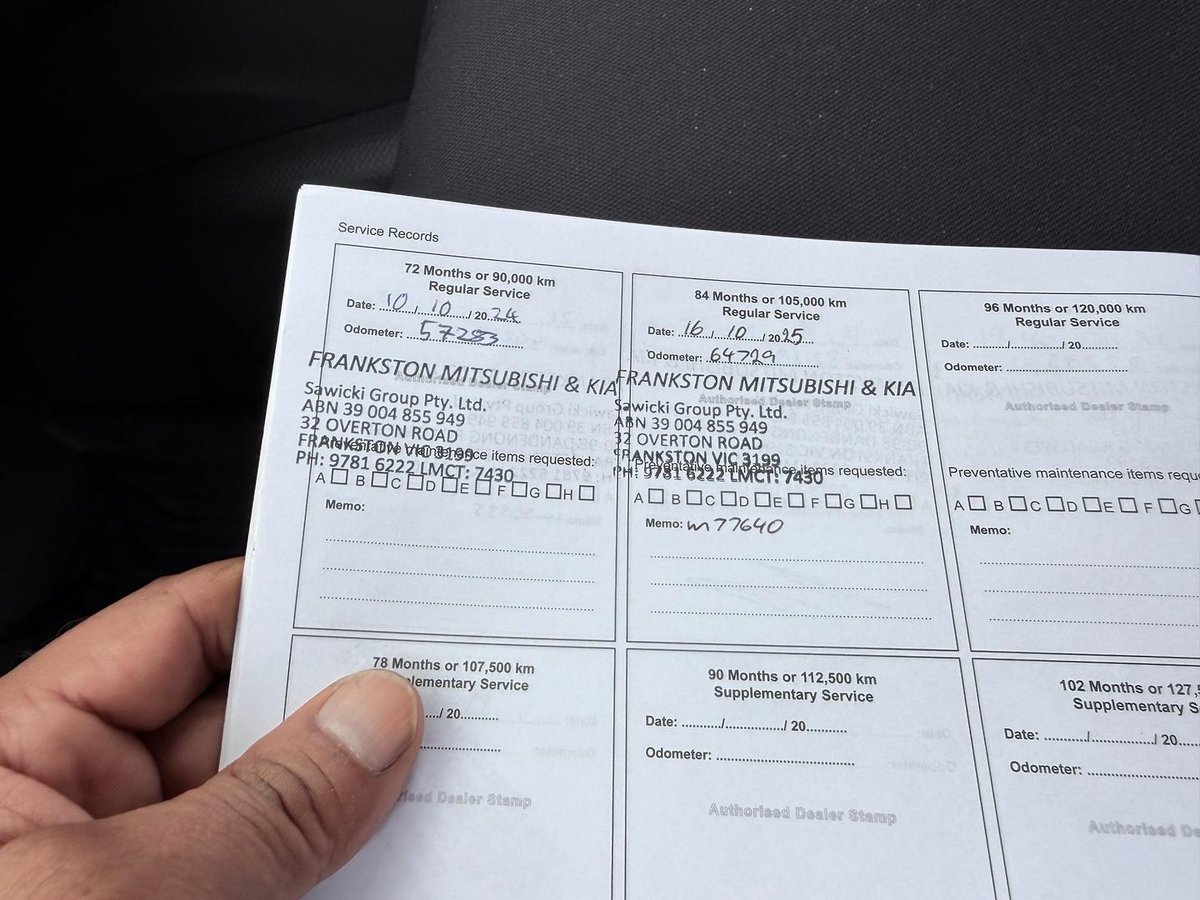 Service Records
72 Months or 90,000 km
Regular Service
Date: 10 / 10 / 2024
Odometer: 57253
FRANKSTON MITSUBISHI & KIA
Authorised Dealer Stamp
Sawicki Group Pty. Ltd.
ABN 39 004 855 949
32 OVERTON ROAD
FRANKSTON VIC 3199
Preventative maintenance items requested:
PH: 9781 6222 LMCT: 7430
A □ B □ C □ D □ E □ F □ G □ H □
Memo:
84 Months or 105,000 km
Regular Service
Date: 16 / 10 / 2025
Odometer: 64729
FRANKSTON MITSUBISHI & KIA
Authorised Dealer Stamp
Sawicki Group Pty. Ltd.
ABN 39 004 855 949
32 OVERTON ROAD
FRANKSTON VIC 3199
Preventative maintenance items requested:
PH: 9781 6222 LMCT: 7430
A □ B □ C □ D □ E □ F □ G □ H □
Memo: m77640
96 Months or 120,000 km
Regular Service
Date: ........./............../ 20..........
Odometer: ...................................
Authorised Dealer Stamp
Preventative maintenance items reque
A □ B □ C □ D □ E □ F □ G □
Memo:
78 Months or 107,500 km
plementary Service
..../ 20..........
Dealer Stamp
90 Months or 112,500 km
Supplementary Service
Date: ........../............../ 20..........
Odometer: ...................................
Authorised Dealer Stamp
102 Months or 127,
Supplementary S
Date: ........../............../ 20..........
Odometer: ...................................
Authorised De